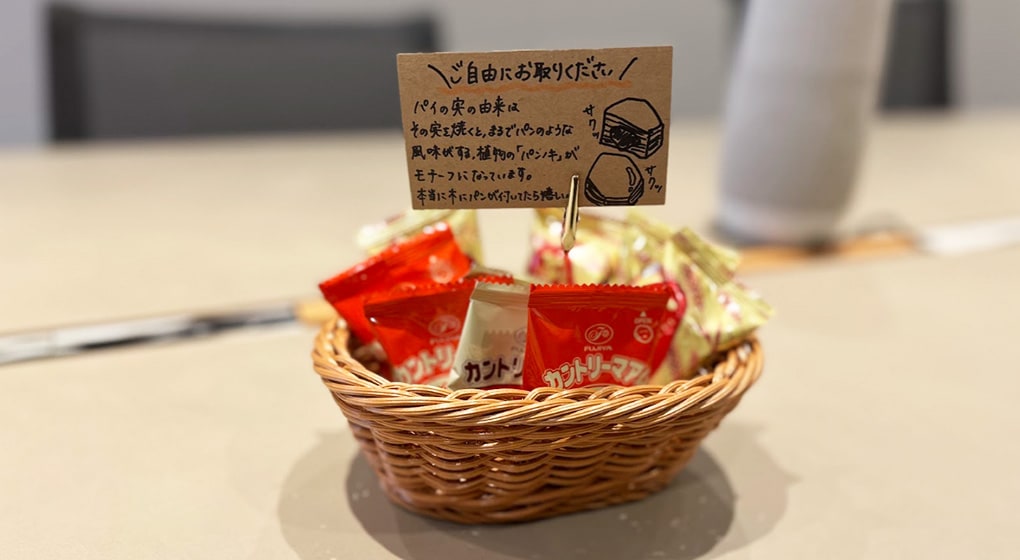 \ご自由にお取りください/
パイの実の由来は
その実を焼くと、まるでパンのような
風味がする、植物の「パンノキ」が
モチーフになっています。
本当に木にパンが付いてたら嬉しい。
サクッ
サクッ
FUJIYA
カントリ
カントリ
FUJIYA
カントリーマア